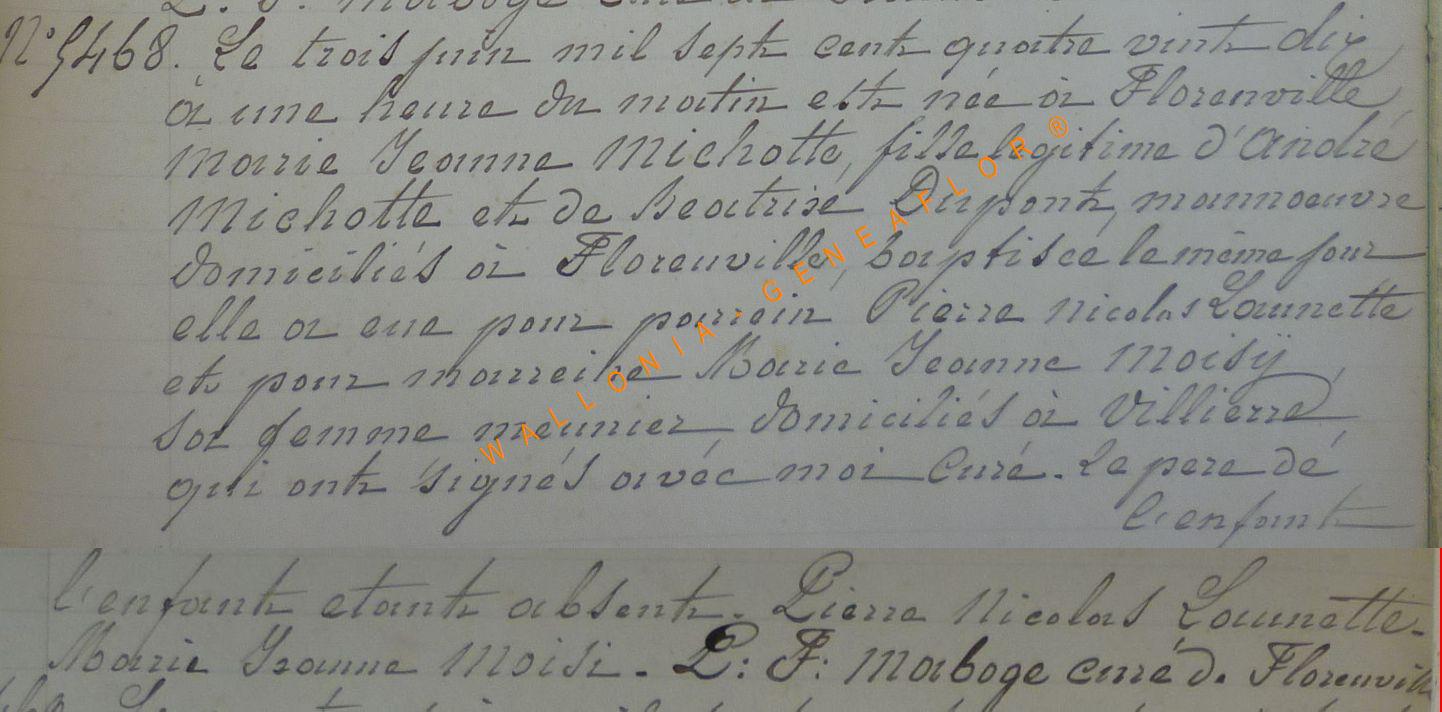 L. F. Maboge curé de
N° 5468. Le trois juin mil sept cent quatre vint dix,
à une heure du matin est née à Florenville
Marie Jeanne Michotte, fille légitime d'André
Michotte et de Beatrise Dupont, mannoeuvre
domiciliés à Florenville, baptisée le même jour
elle a eue pour parrein Pierre Nicolas Launette
et pour marreine Marie Jeanne Moisÿ,
sa femme meunier domiciliés à Villierre,
qui ont signés avéc moi Curé. Le pere dé
l'enfant
l'enfant etant absent. Pierre Nicolas Launette.
Marie Jeanne Moisi. L: F: Maboge curé d. Florenvill
WALLONIA-GENEAFLOR®